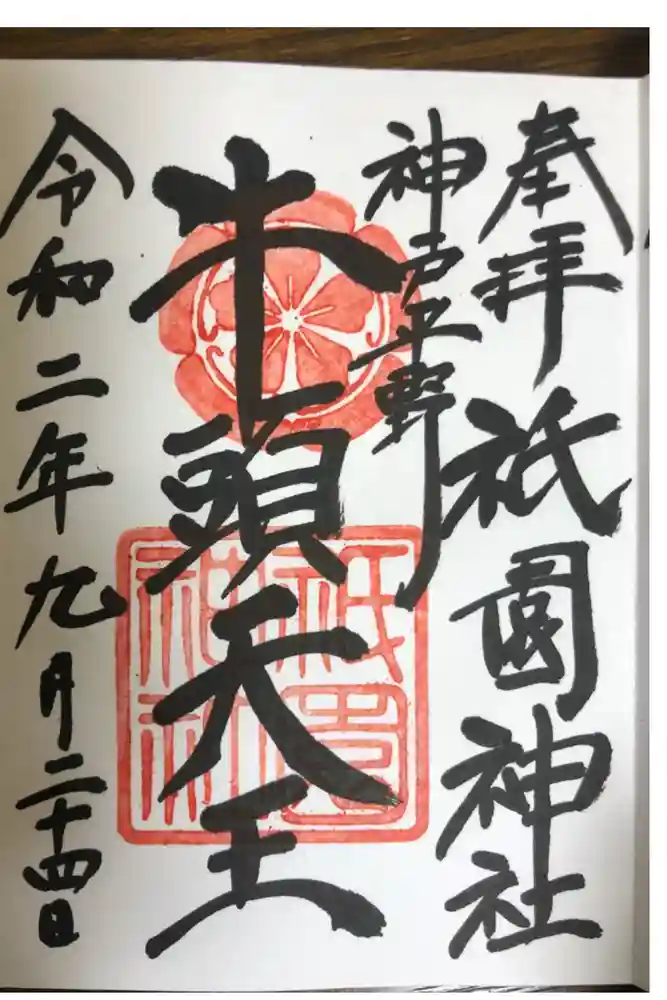 奉拝 祇園神社
神戸平野
牛頭天王
祇園神社
令和二年九月二十四日